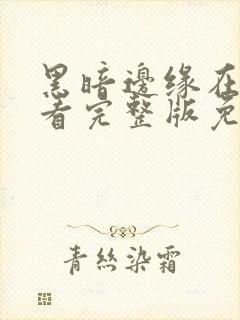 黑暗邊缘在
看完整版免
青絲染霜